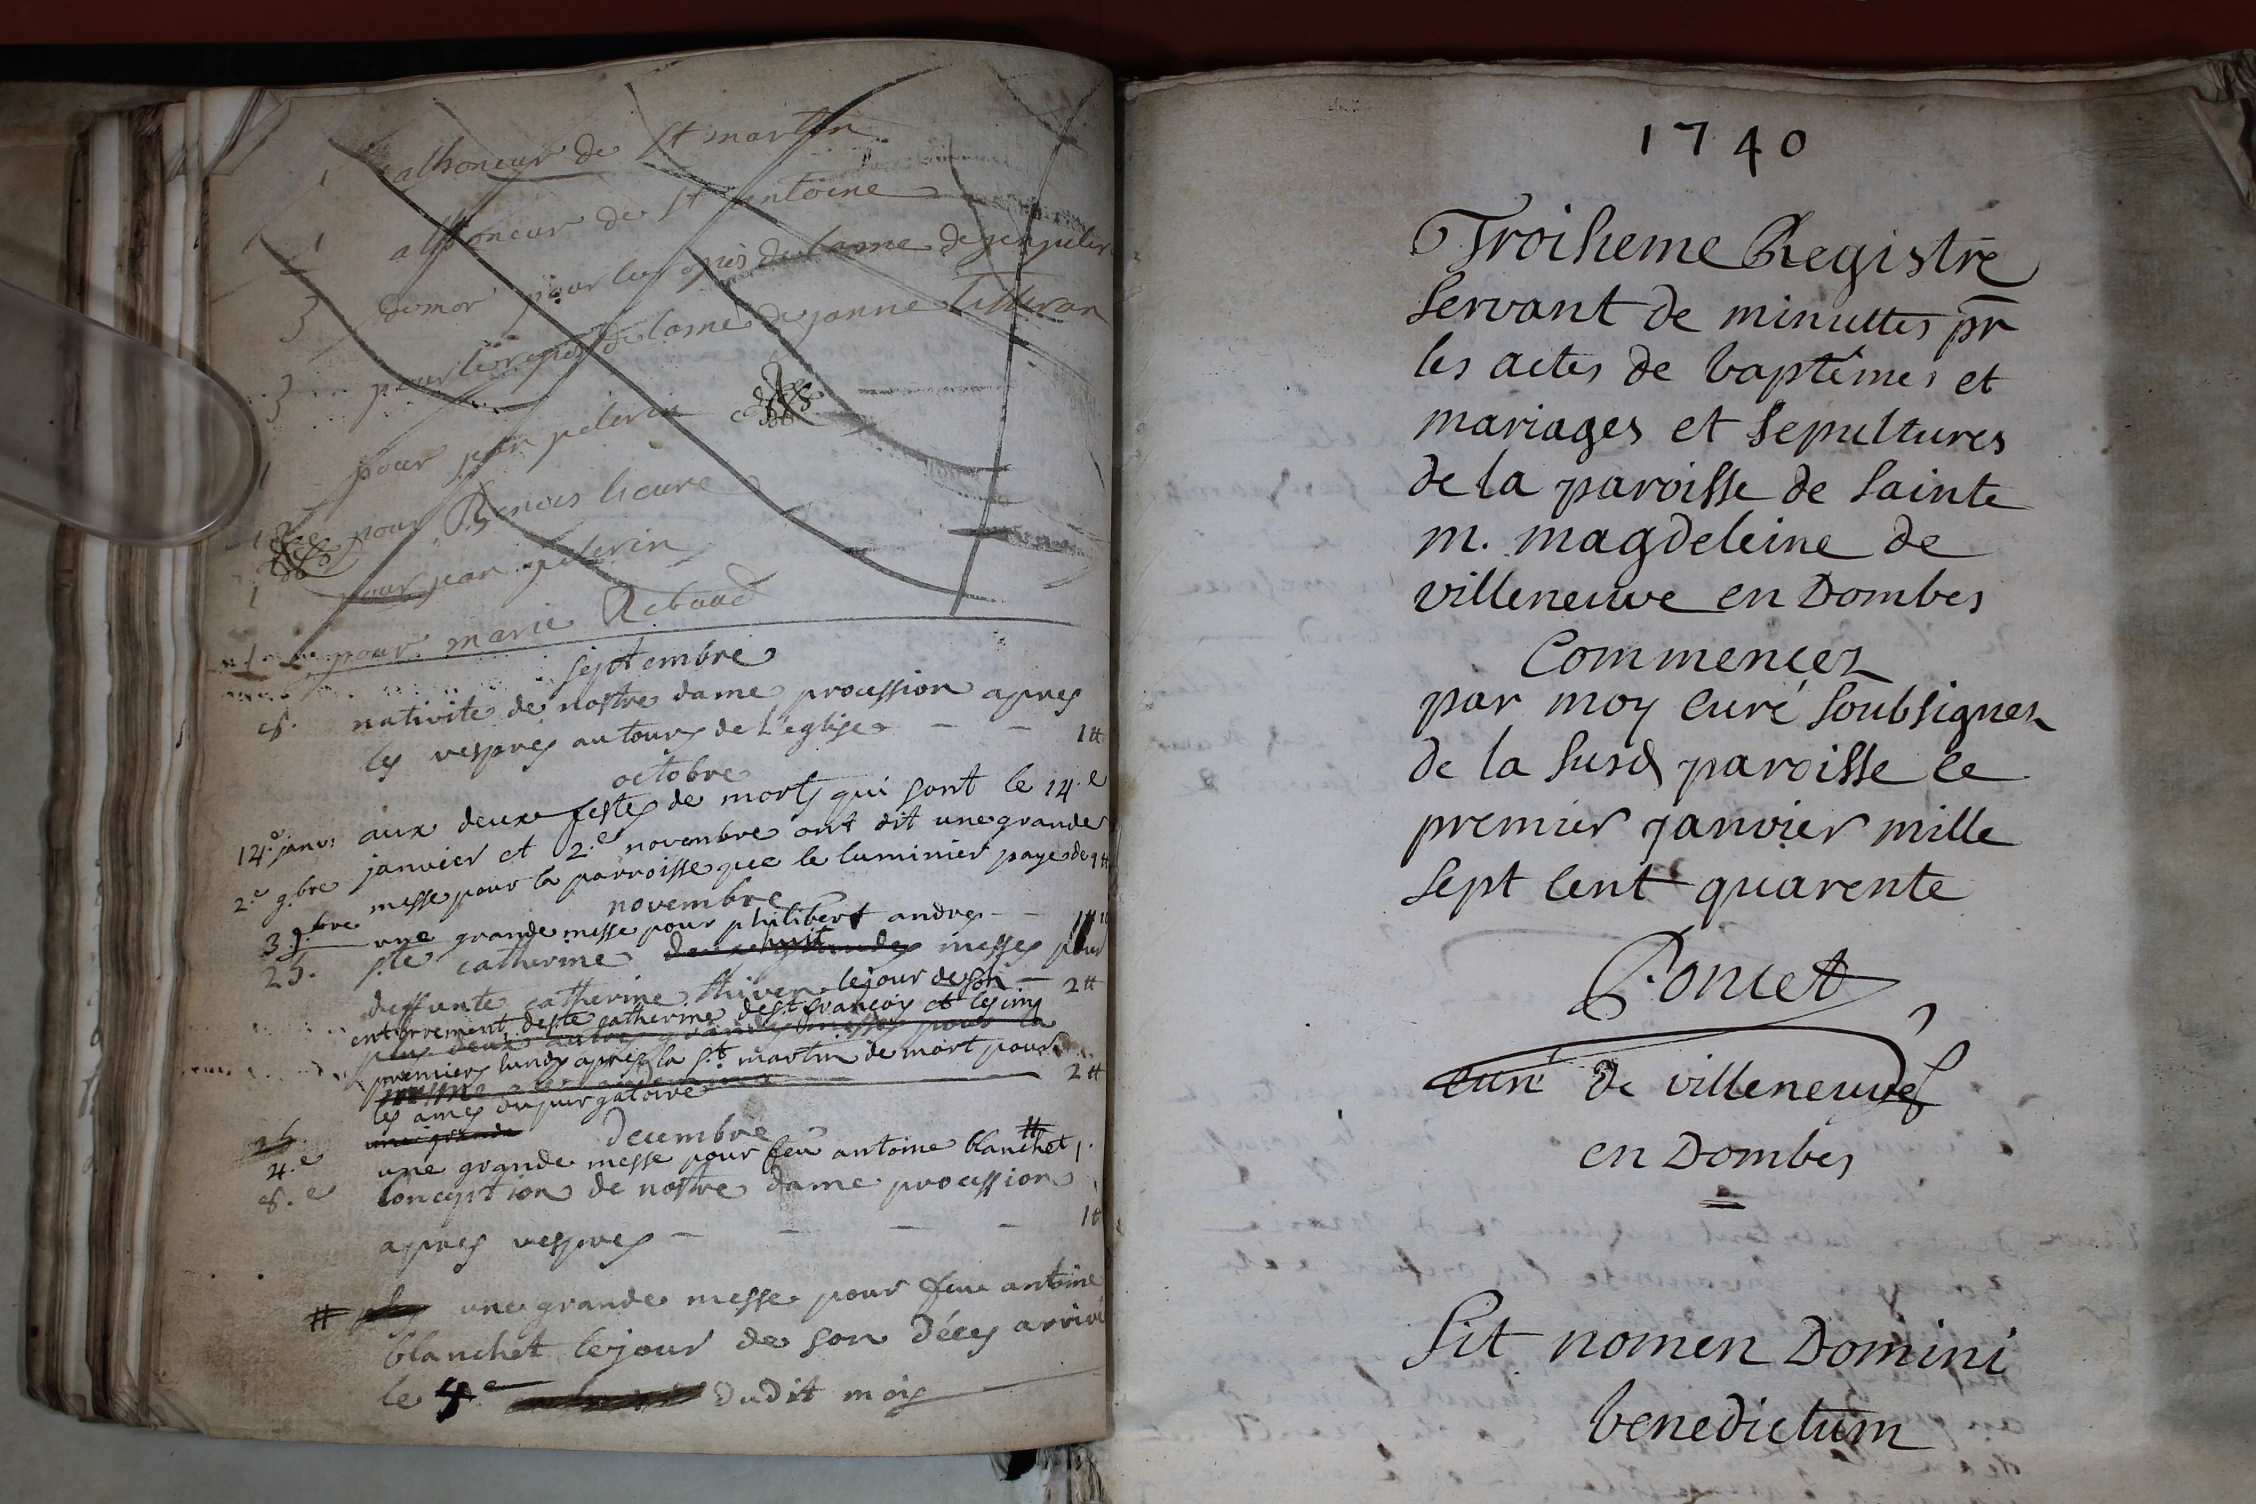 1 alhoneur de St martin
1 alhoneur de St antoine
3 pour le de lame de
3 pour le repos de lame de janne
1 pour jean pelerin
1 pour Benois
1 pour jean pelerin
1 pour marie Reboud
septembre
8. nativite de nostre dame procession apres
les vespres au tours de L'eglise - - 1tt
octobre
14.e janv: aux deux festes de morts qui sont le 14.e
2.e 9.bre janvier et 2.e novembre ont dit une grande
messe pour la parroisse que le luminier paye de 1tt
novembre
3 9.bre une grande messe pour philibert andre - 1tt
25. ste catherine huit messes pour
deffunte catherine le jour de son - 2tt
enterrement de ste catherine de st françois et les cinq
premiers lundy apres la St martin de mort pour
2tt
les ames du purgatoire
26. une grande
decembre
4.e une grande messe pour feu antoine blanchet 1.
8.e Conception de nostre dame procession
apres vespres - - - 1tt
une grande messe pour feu antoine
blanchet le jour de son décés arrivé
le 4.e dudit mois
1740
Troisieme Registre
servant de minuttes pr
les actes de baptêmes et
mariages et sepultures
de la paroisse de sainte
m. magdeleine de
villeneuve en Dombes
Commencez
par moy curé soubsignez
de la susd paroisse ce
premier janvier mille
sept cent quarente
Poncet
curé de villeneuve
en Dombes
Sit nomen Domini
benedictum